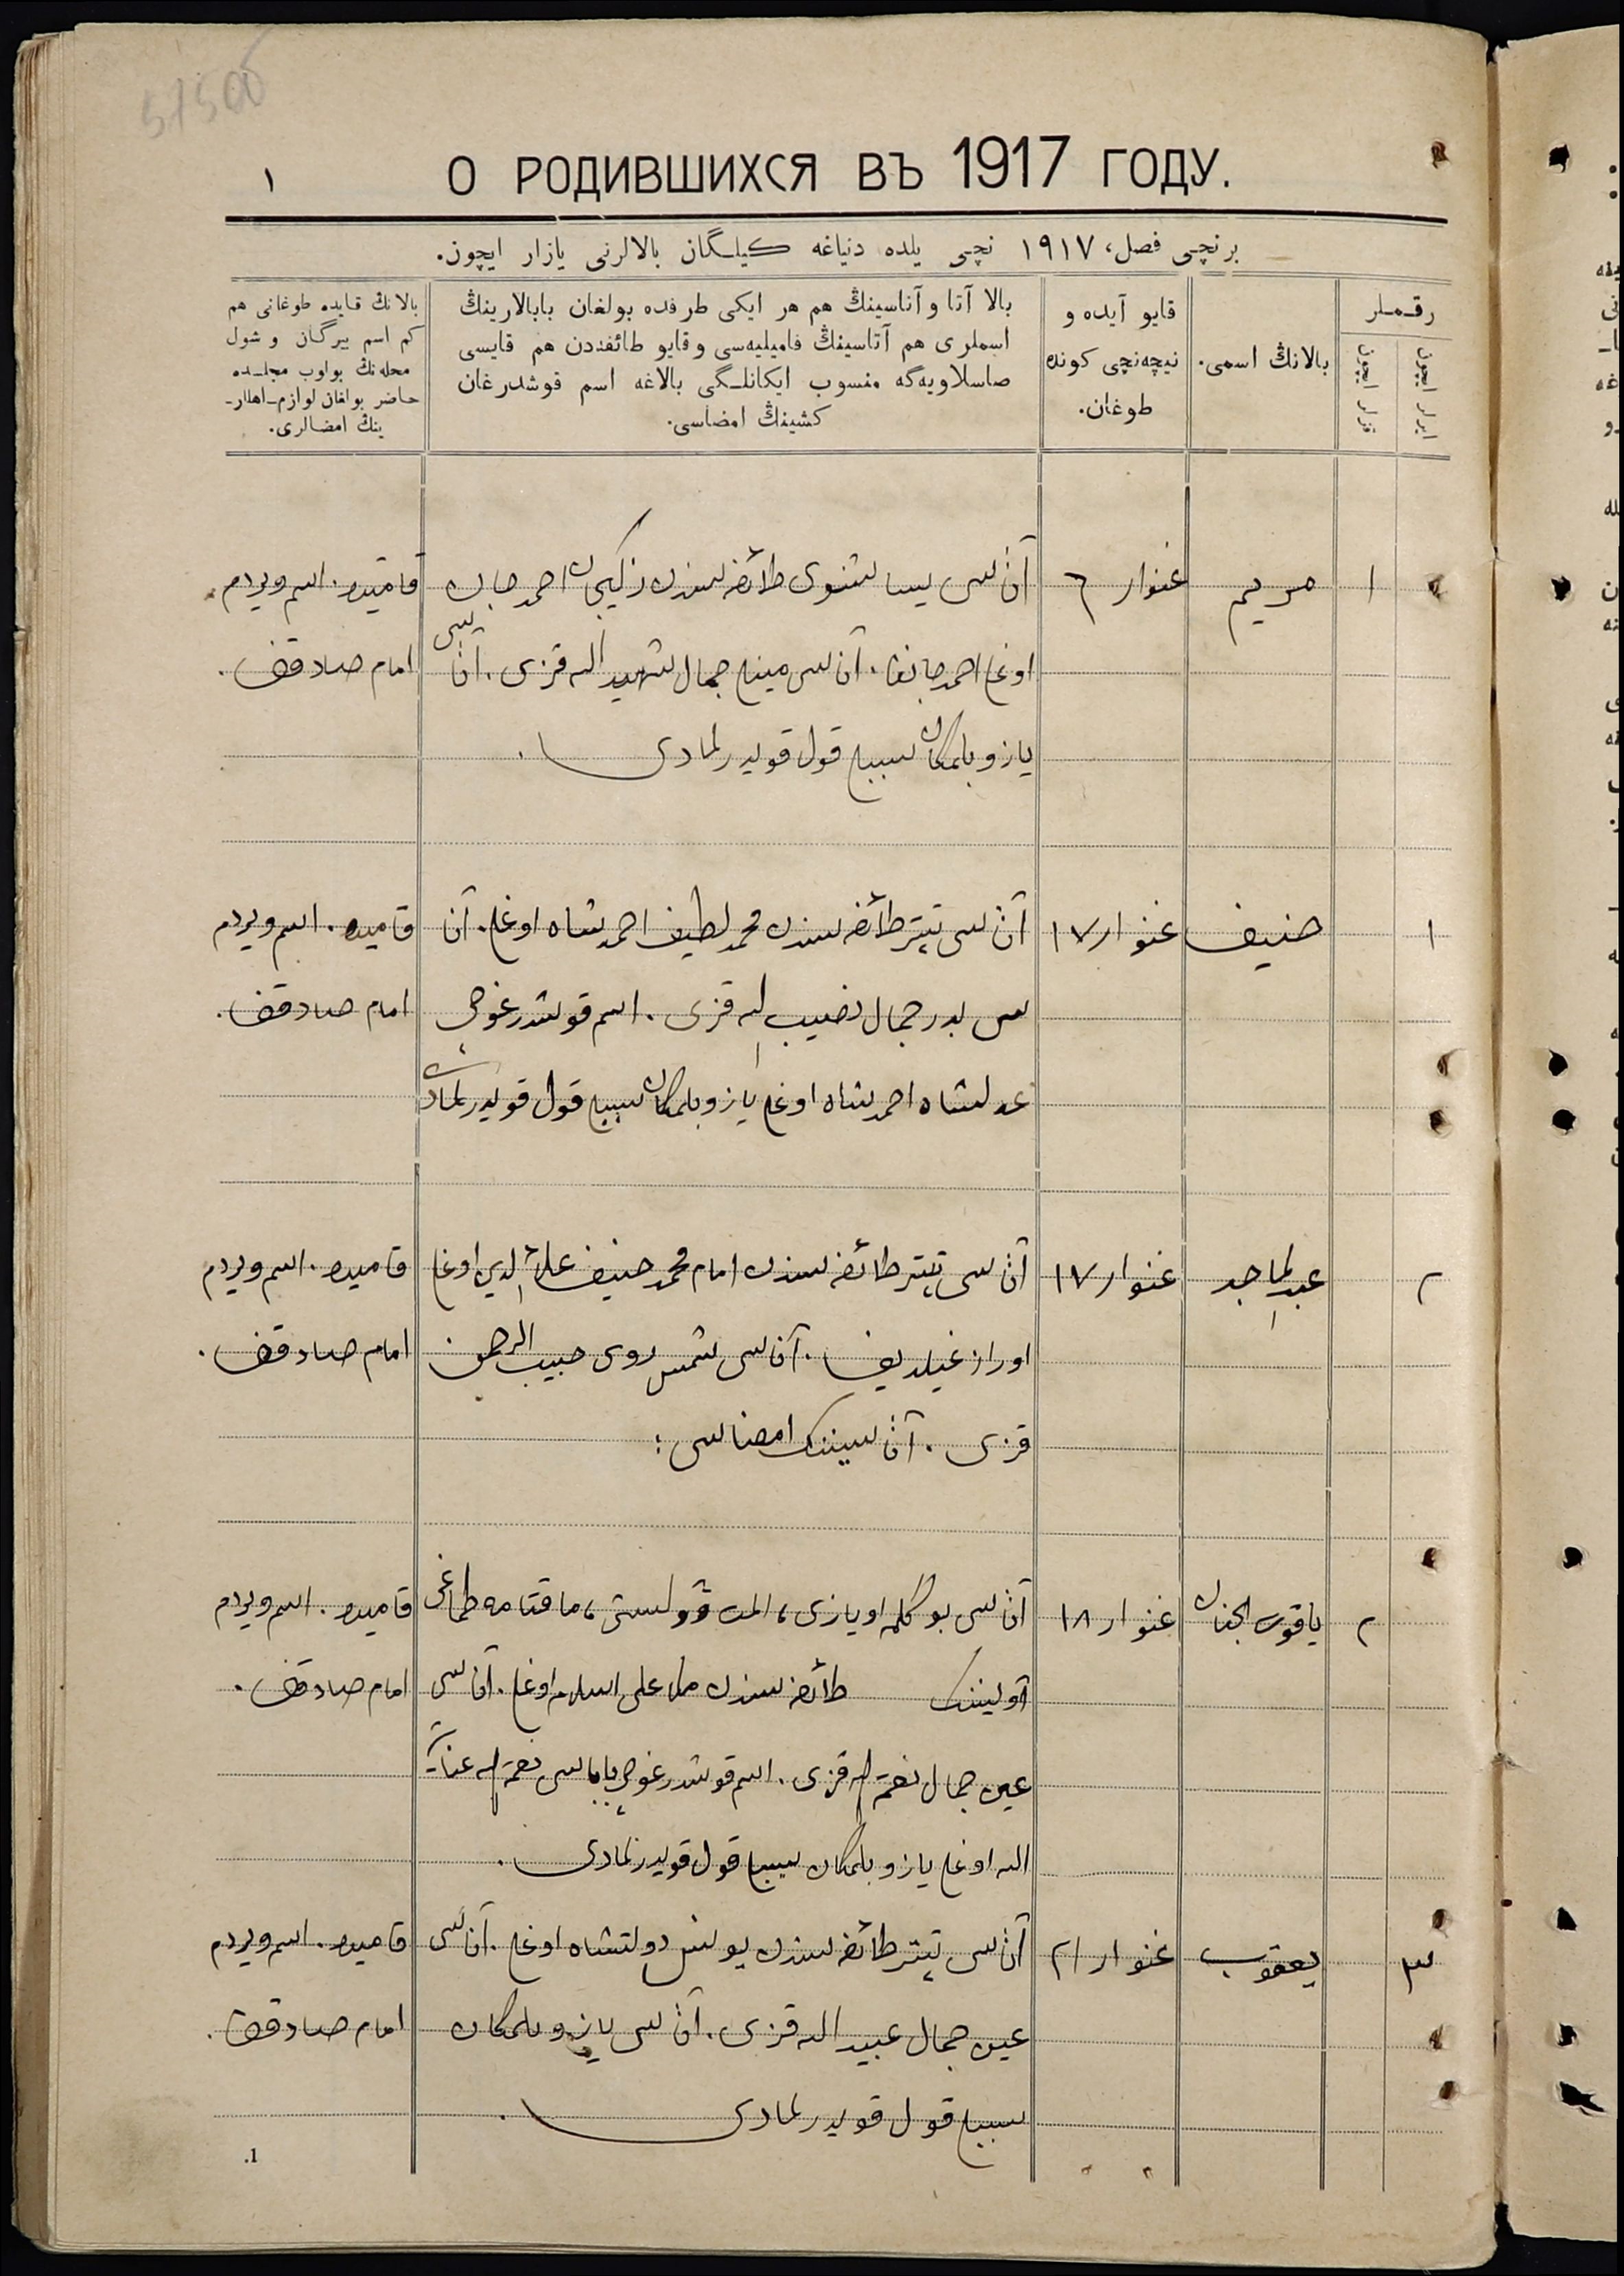 О РОДИВШИХСЯ ВЪ 1917 ГОДУ.
١
برنچی فصل، ١٩١٧ نچی یلده دنیاغه کیلـگان بالالرنی یازار ایچون.
رقـمـلر
ایرلر ایچون
قزلر ایچون
بالانڭ اسمی.
قایو آیده و
نیچه‌نچی کونده
طوغان.
بالا آتا و آناسینڭ هم هر ایکی طرفده بولغان بابالارینڭ
اسملری هم آتاسینڭ فامیلیه‌سی و قایو طائفه‌دن هم قایسی
صاسلاویه‌گه منسوب ایکانلـگی بالاغه اسم قوشدرغان
کشینڭ امضاسی.
بالانڭ قایده طوغانی هم
کم اسم بیرگان و شول
محله‌نڭ بولوب مجلـده
حاضر بولغان لوازم‌ـ‌اهلارـ
ینڭ امضالری.
١ مریم غنوار ٦
آتاسی طائفه‌سندن احمدجان
اوغلی احمدجانف. آناسی جمال شهید الله قزی. آتاسی
یازو بلمگان سببلی قول قویدرلمادی.
اسم ویردم
امام صادقف.
١ حنیف غنوار ١٧
آتاسی تیتر طائفه‌سندن محمد لطیف احمدشاه اوغلی. آنا
سی بدر جمال نصیب الله قزی. اسم قوشدرغوچی
عدلشاه احمدشاه اوغلی یازو بلمگان سببلی قول قویدرلمادی
قامیده. اسم ویردم
امام صادقف.
٢ عبدالماجد غنوار ١٧
آتاسی تیتر طائفه‌سندن امام محمد حنیف علاء الدین اوغلی
اورازغیلدیف. آناسی شمس روی حبیب الرحمن
قزی. آتاسیننک امضاسی:
قامیده. اسم ویردم
امام صادقف.
٢ یاقوت الجنان غنوار ١٨
آتاسی بوگلمه اویازی،
آولیننک طائفه‌سندن اوغلی. آناسی
عین جمال نعمة الله قزی. اسم قوشدرغوچی باباسی نعمة الله عنایة
الله اوغلی یازو بلمگان سببلی قول قویدرلمادی.
قامیده. اسم ویردم
امام صادقف.
٣ یعقوب غنوار ٢١
آتاسی تیتر طائفه‌سندن یونس دولتشاه اوغلی. آناسی
عین جمال عبید الله قزی. آتاسی یازو بلمگان
سببلی قول قویدرلمادی.
قامیده. اسم ویردم
امام صادقف.
1.